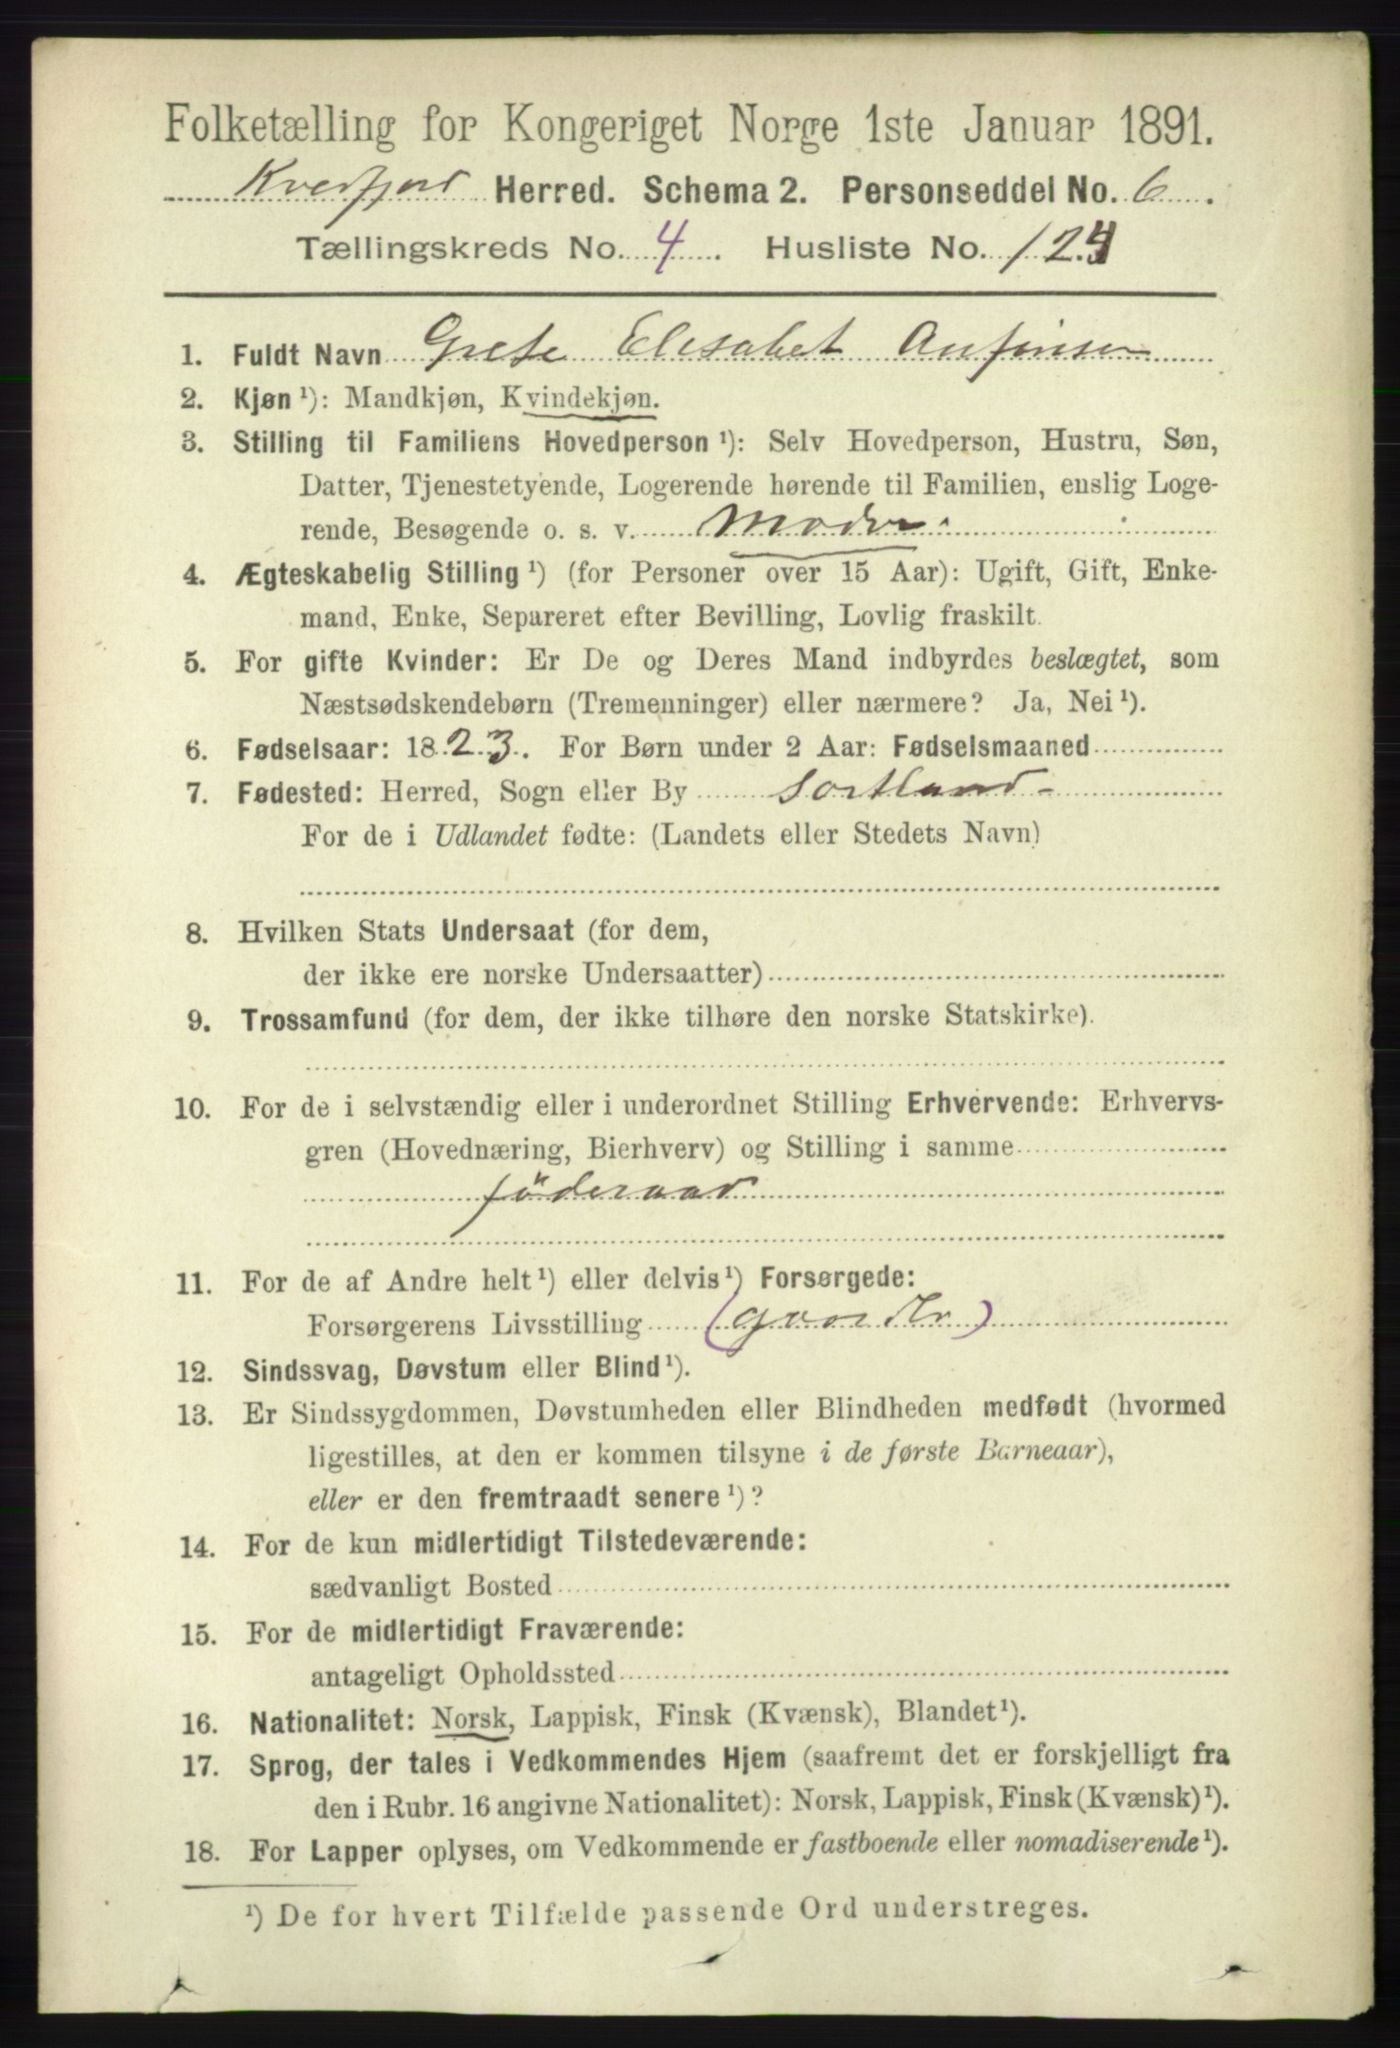 Folketælling for Kongeriget Norge 1ste Januar 1891.
Kvedfjord Herred. Schema 2. Personseddel No. 6.
Tællingskreds No. 4. Husliste No. 124
1. Fuldt Navn Grete Elisabet Anfinsen
2. Kjøn ¹): Mandkjøn, Kvindekjøn.
3. Stilling til Familiens Hovedperson ¹): Selv Hovedperson, Hustru, Søn,
Datter, Tjenestetyende, Logerende hørende til Familien, enslig Loge-
rende, Besøgende o. s. v. Moder
4. Ægteskabelig Stilling ¹) (for Personer over 15 Aar): Ugift, Gift, Enke-
mand, Enke, Separeret efter Bevilling, Lovlig fraskilt.
5. For gifte Kvinder: Er De og Deres Mand indbyrdes beslægtet, som
Næstsødskendebørn (Tremenninger) eller nærmere? Ja, Nei ¹).
6. Fødselsaar: 1823. For Børn under 2 Aar: Fødselsmaaned
7. Fødested: Herred, Sogn eller By Sortland
For de i Udlandet fødte: (Landets eller Stedets Navn)
8. Hvilken Stats Undersaat (for dem,
der ikke ere norske Undersaatter)
9. Trossamfund (for dem, der ikke tilhøre den norske Statskirke).
10. For de i selvstændig eller i underordnet Stilling Erhvervende: Erhvervs-
gren (Hovednæring, Bierhverv) og Stilling i samme
föderaad
11. For de af Andre helt ¹) eller delvis ¹) Forsørgede:
Forsørgerens Livsstilling
12. Sindssvag, Døvstum eller Blind ¹).
13. Er Sindssygdommen, Døvstumheden eller Blindheden medfødt (hvormed
ligestilles, at den er kommen tilsyne i de første Barneaar),
eller er den fremtraadt senere ¹)?
14. For de kun midlertidigt Tilstedeværende:
sædvanligt Bosted
15. For de midlertidigt Fraværende:
antageligt Opholdssted
16. Nationalitet: Norsk, Lappisk, Finsk (Kvænsk), Blandet ¹).
17. Sprog, der tales i Vedkommendes Hjem (saafremt det er forskjelligt fra
den i Rubr. 16 angivne Nationalitet): Norsk, Lappisk, Finsk (Kvænsk) ¹).
18. For Lapper oplyses, om Vedkommende er fastboende eller nomadiserende ¹).
¹) De for hvert Tilfælde passende Ord understreges.